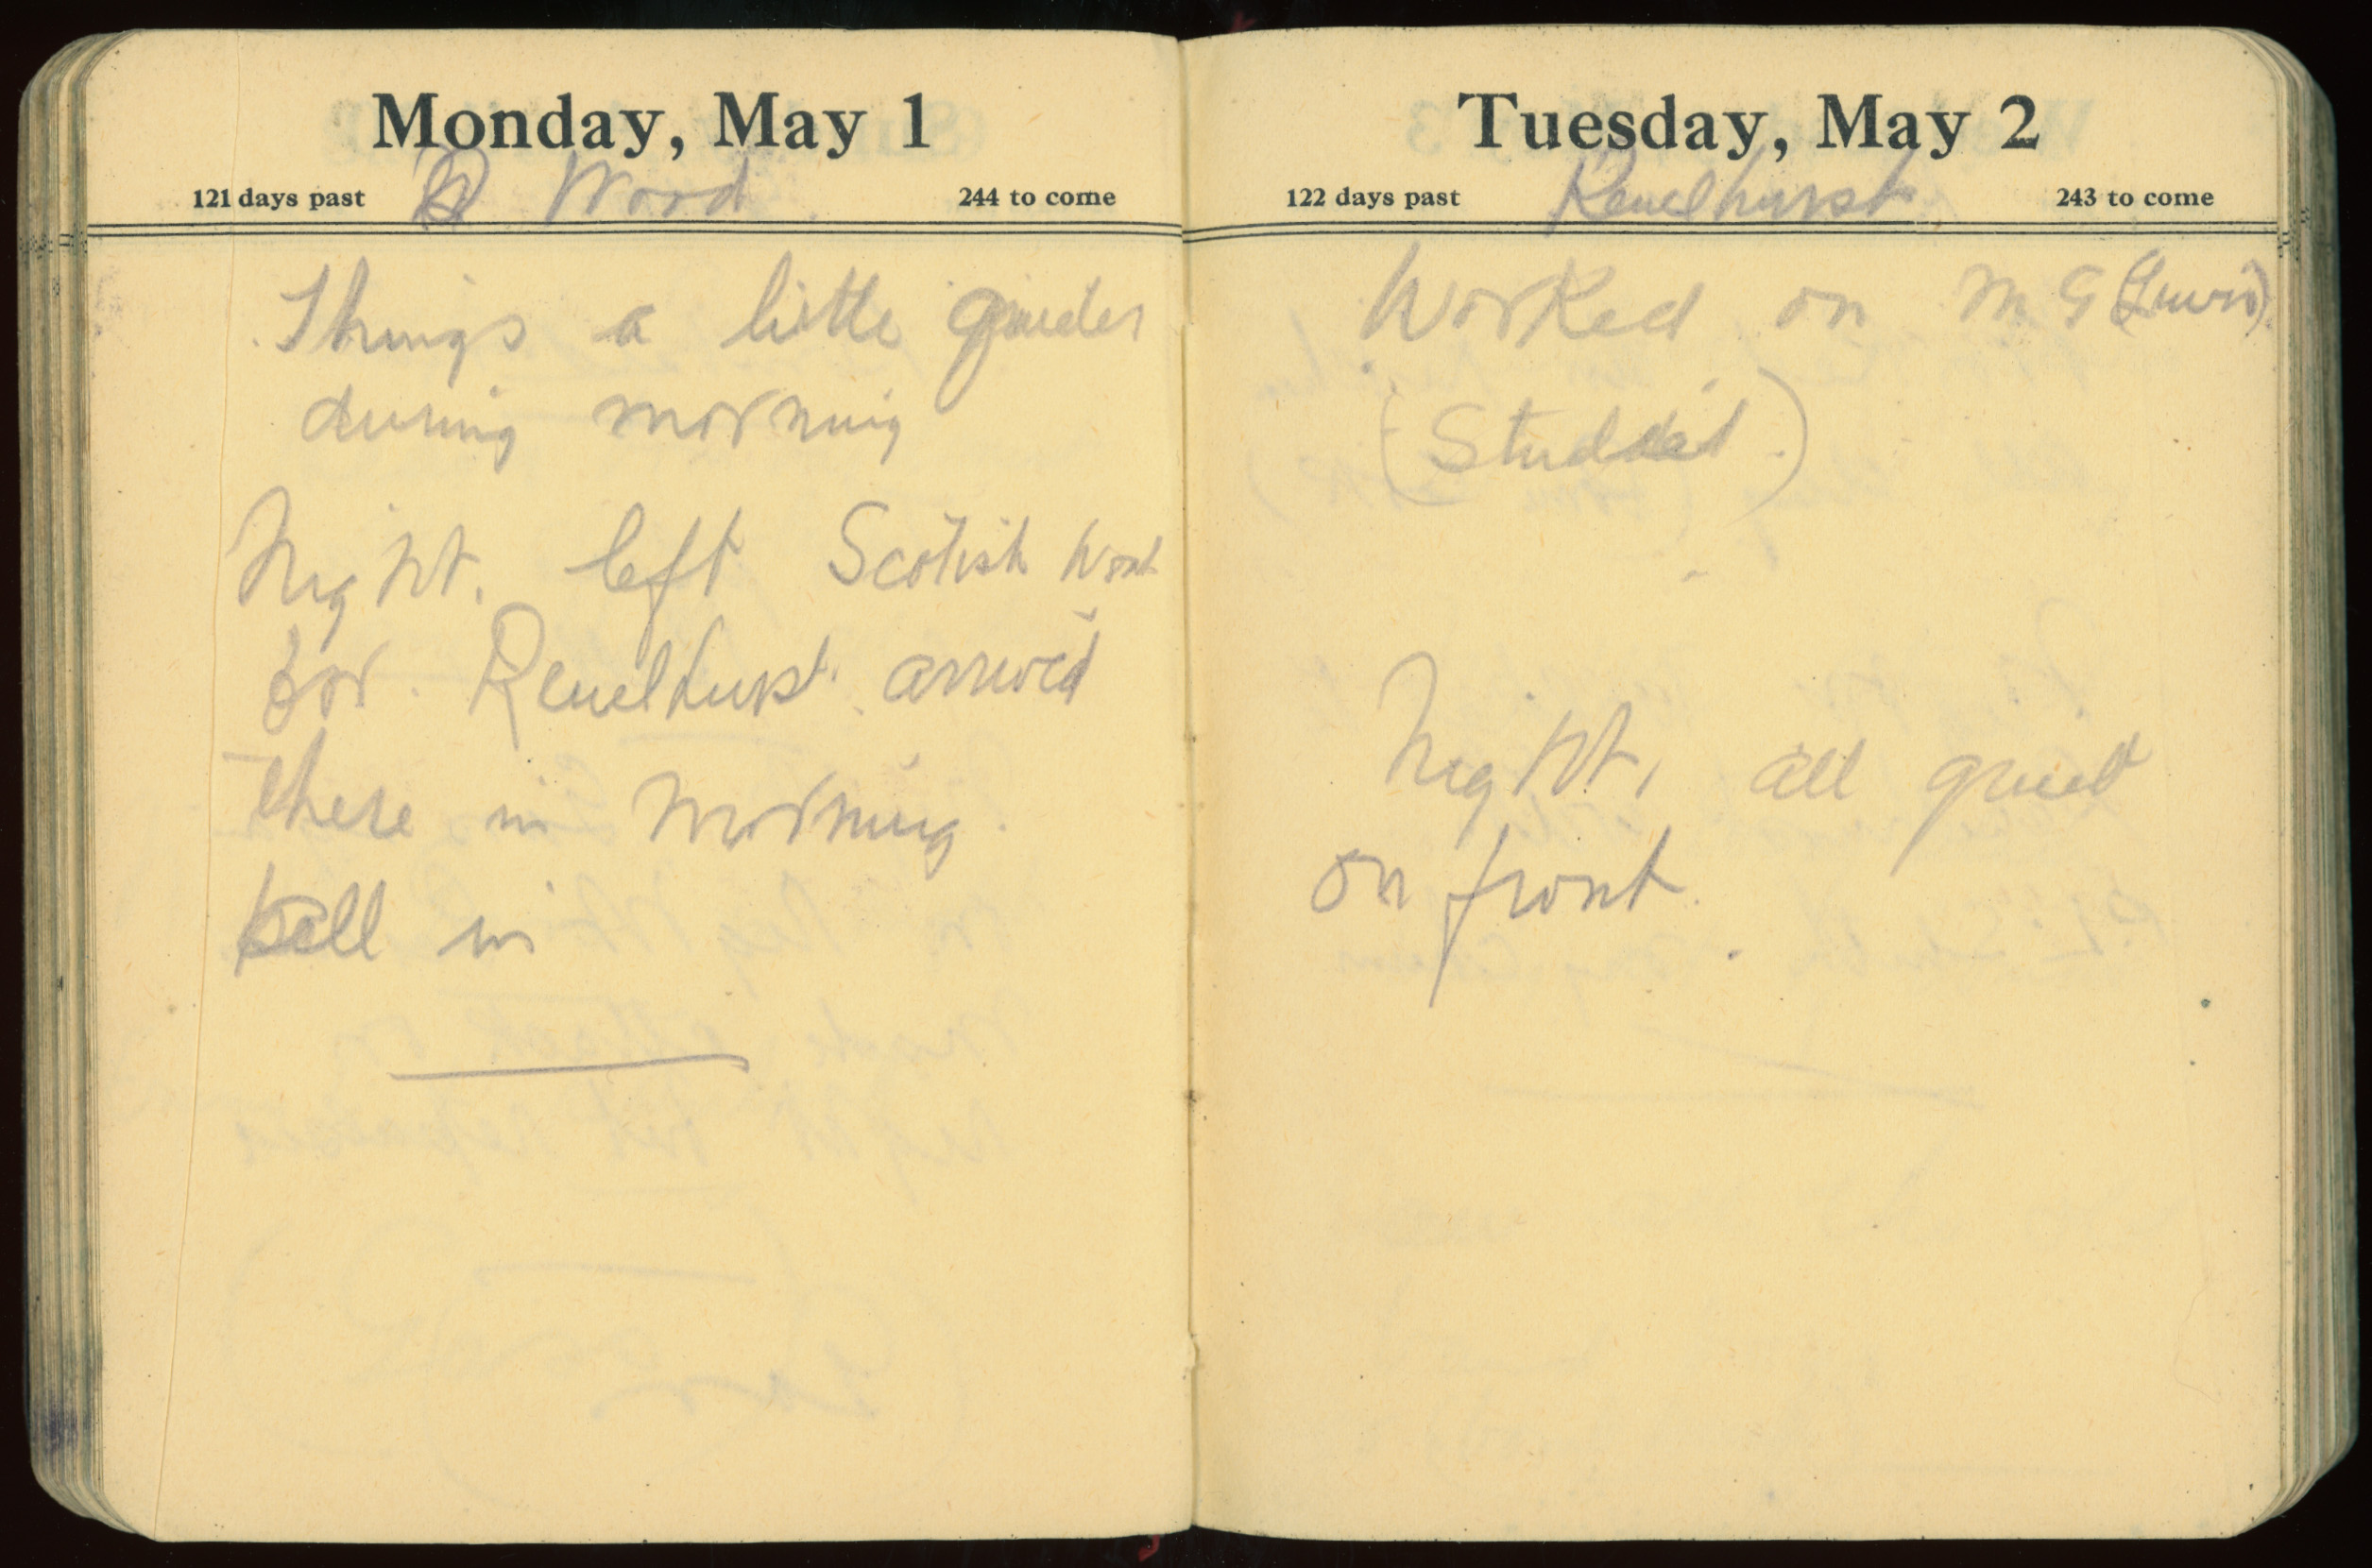 Monday, May 1
121 days past Wood 244 to come
Things a little quieter
during morning
Night. left Scotish Wood
for Reuelhurst. arrived
there in morning.
all in
Tuesday, May 2
122 days past Reuelhurst 243 to come
Worked on M G (Lewis).
(Studded.)
Night, all quiet
on front.